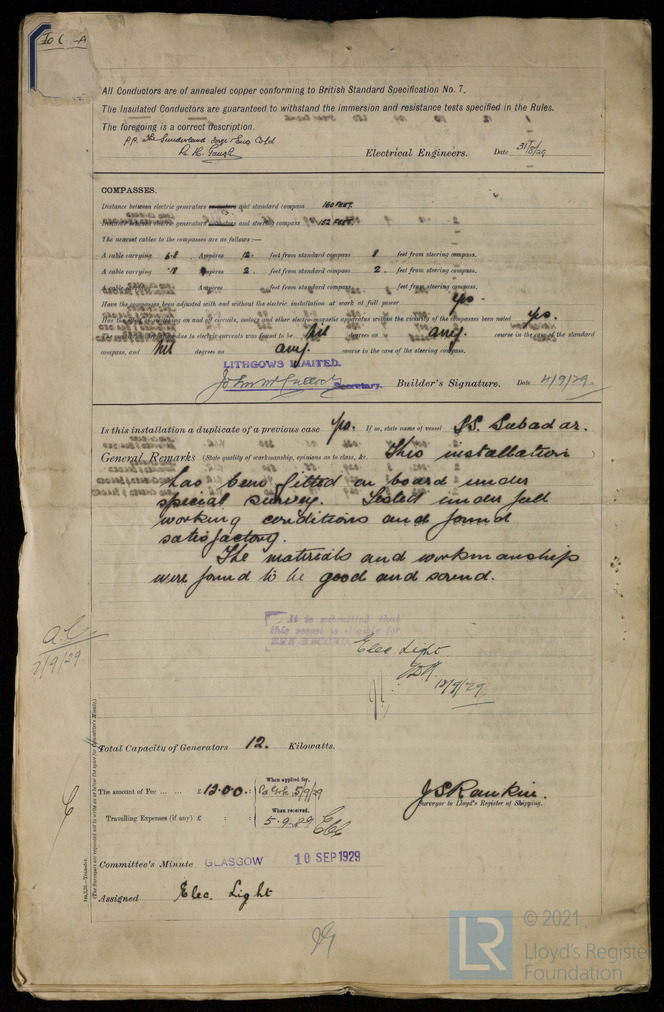 All Conductors are of annealed copper conforming to British Standard Specification No. 7.
The Insulated Conductors are guaranteed to withstand the immersion and resistance tests specified in the Rules.
The foregoing is a correct description.
p.p. The Sunderland Forge & Eng. Co Ld
Electrical Engineers. Date 31/8/29
COMPASSES.
Distance between electric generators or motors and standard compass 160 FEET.
Distance between electric generators or motors and steering compass 152 FEET.
The nearest cables to the compasses are as follows :—
A cable carrying 6.8 Ampères 12. feet from standard compass 8 feet from steering compass.
A cable carrying .18 Ampères 2. feet from standard compass 2. feet from steering compass.
A cable carrying Ampères feet from standard compass feet from steering compass.
Have the compasses been adjusted with and without the electric installation at work at full power yes.
Has the effect of switching on and off circuits, analogy and other electro-magnetic apparatus within the vicinity of the compasses been noted yes.
due to electric currents was found to be nil degrees on any. course in the case of the standard
compass, and nil degrees on any. course in the case of the steering compass.
LITHGOWS LIMITED.
Secretary. Builder's Signature. Date 4/9/29.
Is this installation a duplicate of a previous case yes. If so, state name of vessel S.S. Subadar.
General Remarks (State quality of workmanship, opinions as to class, &c. This installation )
has been fitted on board under
special survey. Tested under full
working conditions and found
satisfactory.
The materials and workmanship
were found to be good and sound.
It is submitted that
this vessel is eligible for
THE RECORD. Elec Light
12/9/29
7/9/29
Total Capacity of Generators 12. Kilowatts.
The amount of Fee ... ... £ 13:0:0 : When applied for, 5/9/29
J S Rankin.
Surveyor to Lloyd's Register of Shipping.
Travelling Expenses (if any) £ : : When received, 5.9.29
Committee's Minute GLASGOW 10 SEP 1929
Assigned Elec. Light
© 2021
LR Lloyd's Register
Foundation